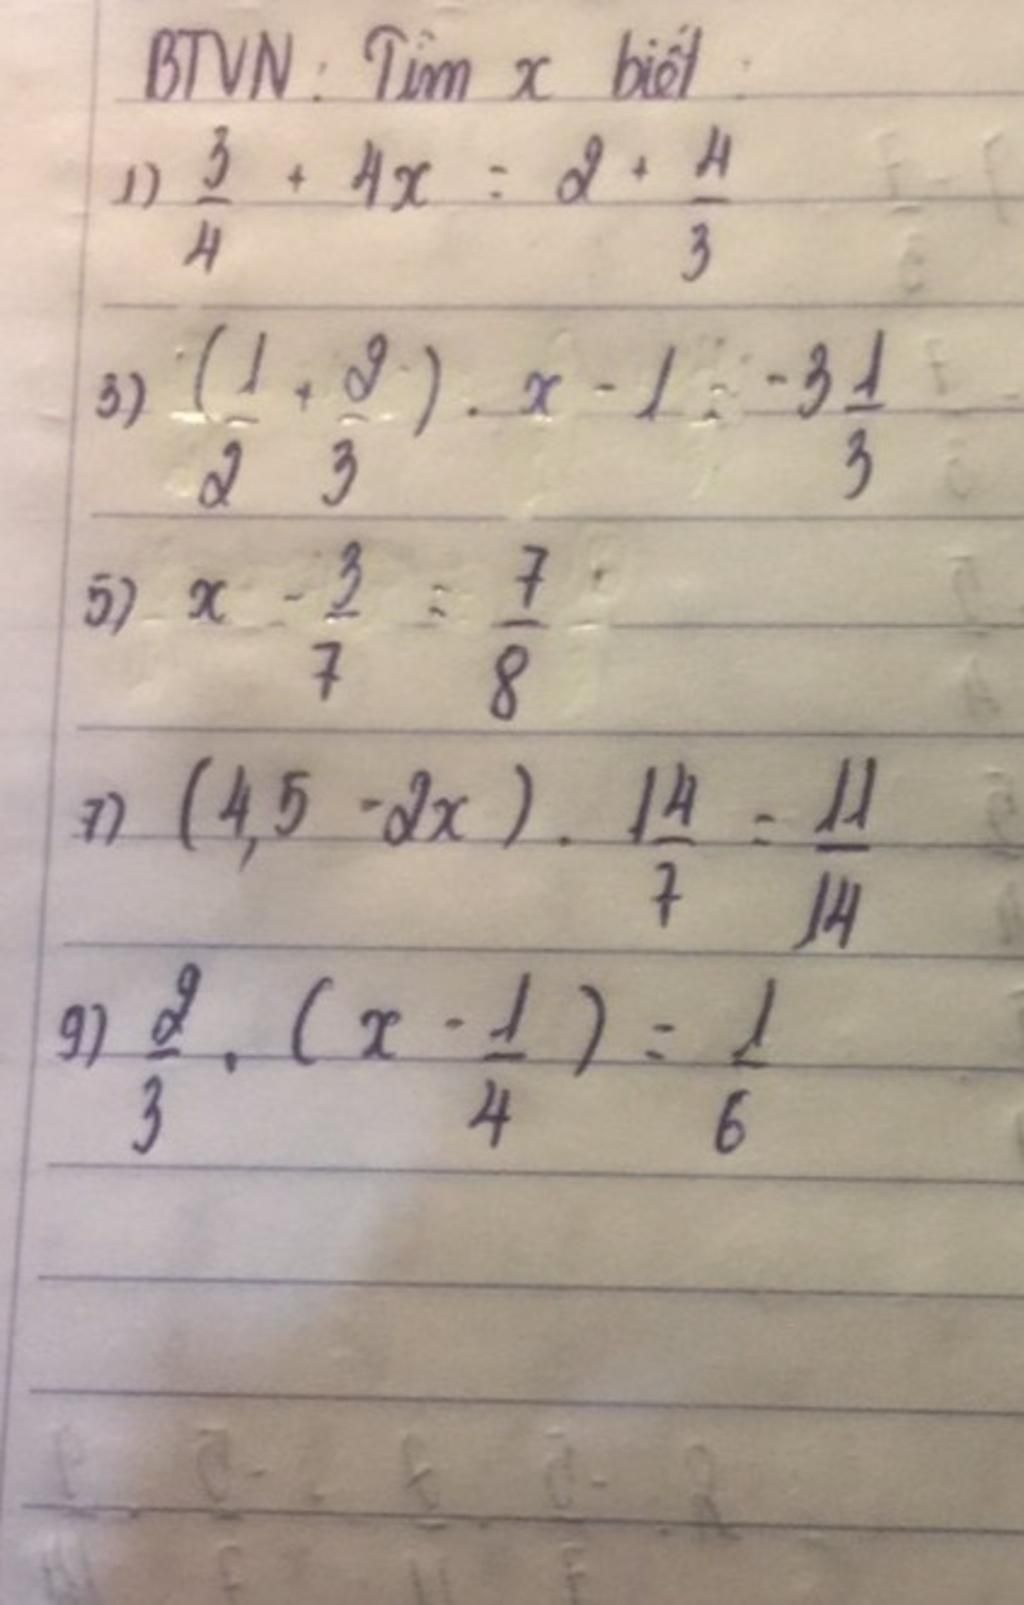 BTVN: Tìm x biết:
1) 3/4 + 4x = 2 + 4/3
3) (1/2 + 2/3) . x - 1 = -3 1/3
5) x - 3/7 = 7/8
7) (4,5 - 2x) . 14/7 = 11/14
9) 2/3 . (x - 1/4) = 1/6